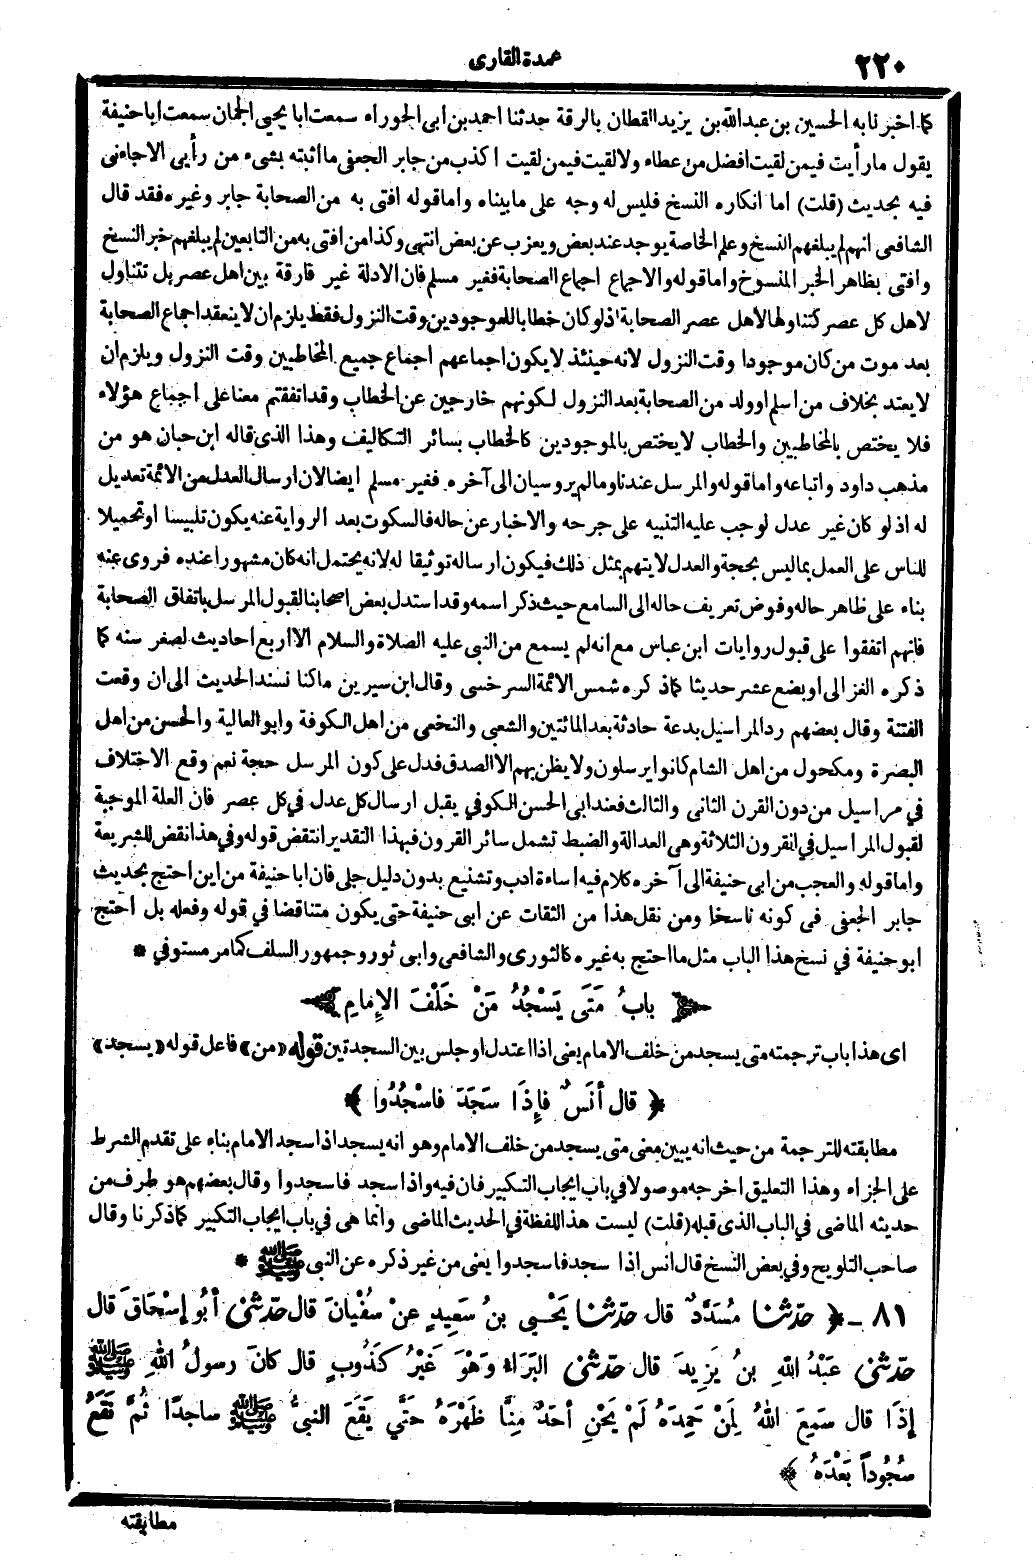 ٢٢٠
عمدة القارى
كما اخبرنا به الحسين بن عبدالله بن يزيد القطان بالرقة حدثنا احمد بن ابى الحوراء سمعت ابا يحيى الجمان سمعت أبا حنيفة
يقول مارأيت فيمن لقيت افضل من عطاء ولا لقيت فيمن لقيت اكذب من جابر الجعفى ما اثبته بشىء من رأيى الا جاءنى
فيه بحديث (قلت) اما انكاره النسخ فليس له وجه على مابيناه واما قوله افتى به من الصحابة جابر وغيره فقد قال
الشافعى انهم لم يبلغهم النسخ وعلم الخاصة يوجد عند بعض ويعزب عن بعض انتهى وكذا من افتى به من التابعين لم يبلغهم خبر النسخ
وافتى بظاهر الخبر المنسوخ واما قوله والاجماع اجماع الصحابة فغير مسلم فان الادلة غير فارقة بين اهل عصر بل تتناول
لاهل كل عصر كتناولها لاهل عصر الصحابة اذ لو كان خطابا للموجودين وقت النزول فقط يلزم ان لا ينعقد اجماع الصحابة
بعد موت من كان موجودا وقت النزول لانه حينئذ لا يكون اجماعهم اجماع جميع المخاطبين وقت النزول ويلزم ان
لا يعتد بخلاف من اسلم او ولد من الصحابة بعد النزول لكونهم خارجين عن الخطاب وقد اتفقتم معنا على اجماع هؤلاء
فلا يختص بالمخاطبين والخطاب لا يختص بالموجودين كالخطاب بسائر التكاليف وهذا الذى قاله ابن حبان هو من
مذهب داود واتباعه واما قوله والمرسل عندنا وما لم يرو سيان الى آخره فغير مسلم ايضا لان ارسال العدل من الائمة تعديل
له اذ لو كان غير عدل لوجب عليه التنبيه على جرحه والاخبار عن حاله فالسكوت بعد الرواية عنه يكون تلبيسا او تحميلا
للناس على العمل بما ليس بحجة والعدل لا يتهم بمثل ذلك فيكون ارساله توثيقا له لانه يحتمل انه كان مشهورا عنده فروى عنه
بناء على ظاهر حاله وفوض تعريف حاله الى السامع حيث ذكر اسمه وقد استدل بعض اصحابنا لقبول المرسل باتفاق الصحابة
فانهم اتفقوا على قبول روايات ابن عباس مع انه لم يسمع من النبى عليه الصلاة والسلام الا اربع احاديث لصغر سنه كما
ذكره الغزالى او بضع عشر حديثا كما ذكره شمس الائمة السرخسى وقال ابن سيرين ما كنا نسند الحديث الى ان وقعت
الفتنة وقال بعضهم رد المراسيل بدعة حادثة بعد المائتين والشعبى والنخعى من اهل الكوفة وابو العالية والحسن من اهل
البصرة ومكحول من اهل الشام كانوا يرسلون ولا يظن بهم الا الصدق فدل على كون المرسل حجة نعم وقع الاختلاف
في مراسيل من دون القرن الثانى والثالث فعند ابى الحسن الكوفي يقبل ارسال كل عدل في كل عصر فان العلة الموجبة
لقبول المراسيل في القرون الثلاثة وهى العدالة والضبط تشمل سائر القرون فبهذا التقدير انتقض قوله وفي هذا نقض للشريعة
واما قوله والعجب من ابى حنيفة الى آخره كلام فيه اساءة ادب وتشنيع بدون دليل جلى فان ابا حنيفة من اين احتج بحديث
جابر الجعفى فى كونه ناسخا ومن نقل هذا من الثقات عن ابى حنيفة حتى يكون متناقضا في قوله وفعله بل احتج
ابو حنيفة في نسخ هذا الباب مثل ما احتج به غيره كالثورى والشافعى وابى ثور وجمهور السلف كما مر مستوفي *
بابُ مَتَى يَسْجُدُ مَنْ خَلْفَ الإِمامِ
اى هذا باب ترجمته متى يسجد من خلف الامام يعنى اذا اعتدل او جلس بين السجدتين قوله «من» فاعل قوله «يسجد»
﴿ قال أنَسٌ فإِذَا سَجَدَ فاسْجُدُوا ﴾
مطابقته للترجمة من حيث انه يبين معنى متى يسجد من خلف الامام وهو انه يسجد اذا سجد الامام بناء على تقدم الشرط
على الجزاء وهذا التعليق اخرجه موصولا في باب ايجاب التكبير فان فيه واذا سجد فاسجدوا وقال بعضهم هو طرف من
حديثه الماضى في الباب الذى قبله (قلت) ليست هذا اللفظة في الحديث الماضى وانما هى في باب ايجاب التكبير كما ذكرنا وقال
صاحب التلويح وفي بعض النسخ قال انس اذا سجد فاسجدوا يعنى من غير ذكره عن النبى ﷺ *
٨١ - ﴿ حدّثنا مُسَدَّدٌ قال حدّثنا يَحْيى بنُ سَعِيدٍ عنْ سُفْيانَ قال حدّثنى أبُو إسْحَاقَ قال
حدّثنى عَبْدُ اللهِ بنُ يَزِيدَ قال حدّثنى البَرَاءُ وَهْوَ غَيْرُ كَذُوبٍ قال كانَ رسولُ اللهِ ﷺ
إذَا قال سَمِعَ اللهُ لِمَنْ حَمِدَهُ لَمْ يَحْنِ أحَدٌ مِنَّا ظَهْرَهُ حَتَّى يَقَعَ النبىُّ ﷺ ساجدًا ثُمَّ نَقَعُ
سُجُوداً بَعْدَهُ ﴾
مطابقته